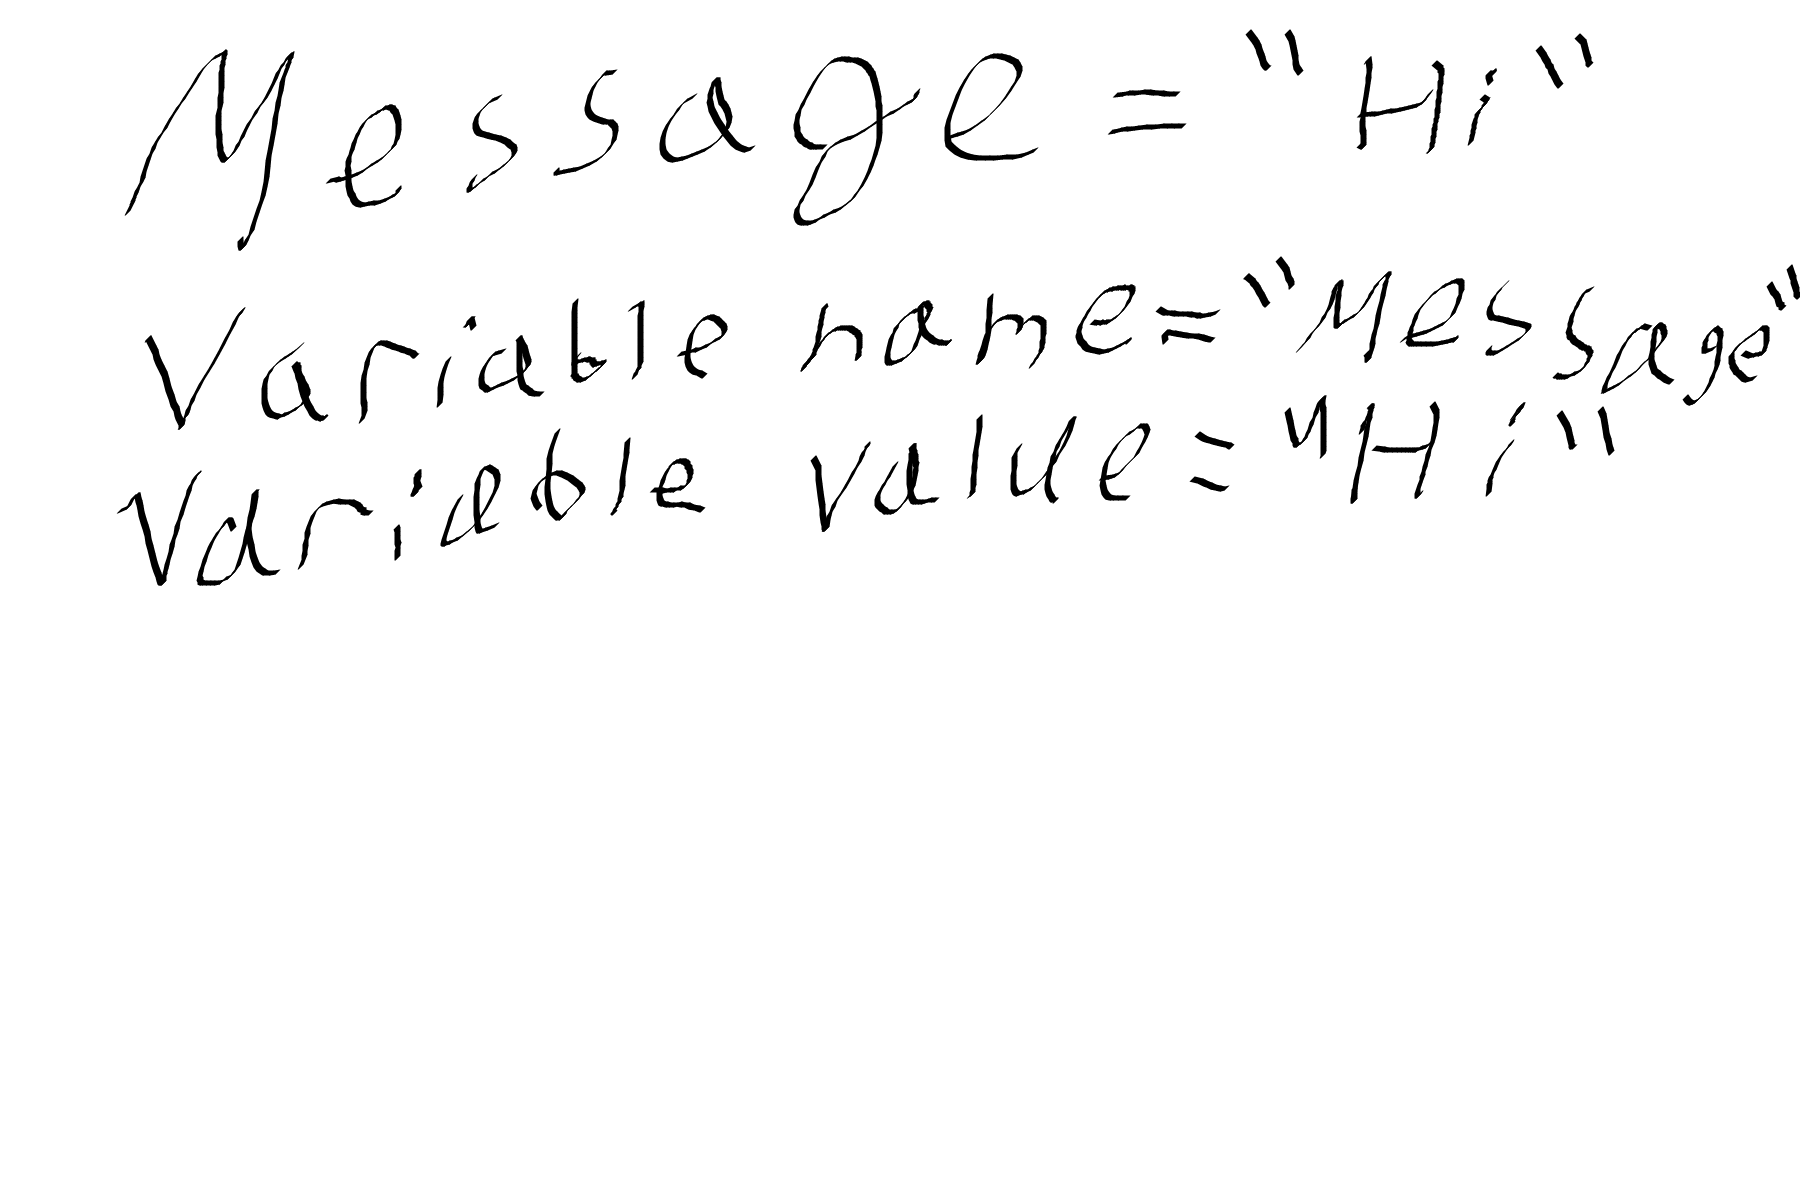 Message = "Hi"
Variable name="Message"
Variable value="Hi"